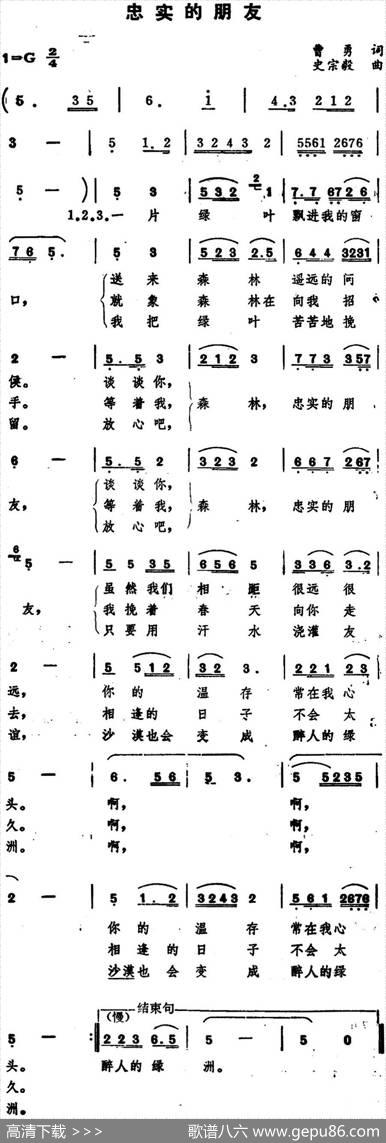 忠实的朋友
1=G 2/4
曹勇 词
史宗毅 曲
(5. 35 | 6. i | 4.3 212 |
3 — | 5 1.2 | 3243 2 | 5561 2676 |
5 — ) | 5 3 | 532 1 | 7.7 6726 |
1.2.3.一片 绿叶 飘进我的窗
765. | 5 3 | 523 2.5 | 644 3231 |
送来 森林 遥远的问
口, 就象 森林在 向我招
我把 绿叶 苦苦地挽
2 — | 5.5 3 | 212 3 | 773 357 |
侯。 谈谈你,
手。 等着我, 森林, 忠实的朋
留。 放心吧,
6 — | 5.5 2 | 323 2 | 667 267 |
谈谈你,
友, 等着我, 森林, 忠实的朋
放心吧,
5 — | 5 535 | 656 5 | 336 3.2 |
虽然我们 相距 很远很
友, 我挽着 春天 向你走
只要用 汗水 浇灌友
2 — | 5 512 | 32 3. | 221 23 |
远, 你的 温存 常在我心
去, 相逢的 日子 不会太
谊, 沙漠也会 变成 醉人的绿
5 — | 6. 56 | 5 3. | 5 5235 |
头。 啊, 啊,
久。 啊, 啊,
洲。 啊, 啊,
2 — | 5 1.2 | 3243 2 | 561 2676 |
你的 温存 常在我心
相逢的 日子 不会太
沙漠也会 变成 醉人的绿
(慢) 结束句
5 — :| 223 6.5 | 5 — | 5 0
头。 醉人的绿 洲。
久。
洲。
高清下载 >>> 歌谱八六 www.gepu86.com